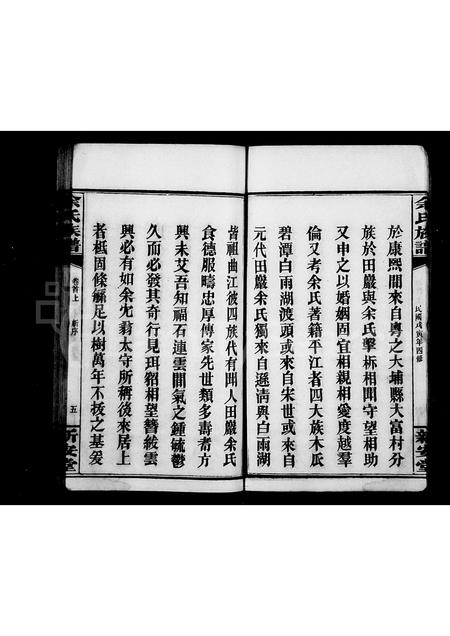 余氏族譜
民國戊寅年四修
新安堂
於康熙間來自粵之大埔縣大富村分
族於田嚴與余氏擊柝相聞守望相助
又申之以婚姻固宜相親相愛度越羣
倫又考余氏著籍平江者四大族木瓜
碧潭白雨湖渡頭或來自宋世或來自
元代田嚴余氏獨來自遜清與白雨湖
皆祖曲江彼四族代有聞人田嚴余氏
食德服疇忠厚傳家先世類多壽耆方
興未艾吾知福石連雲間氣之鍾毓鬱
久而必發其奇行見珥貂相望簪紱雲
興必有如余尢翁太守所稱後來居上
者柢固條繁足以樹萬年不拔之基爰
余氏族譜
卷首上
新序
五
新安堂